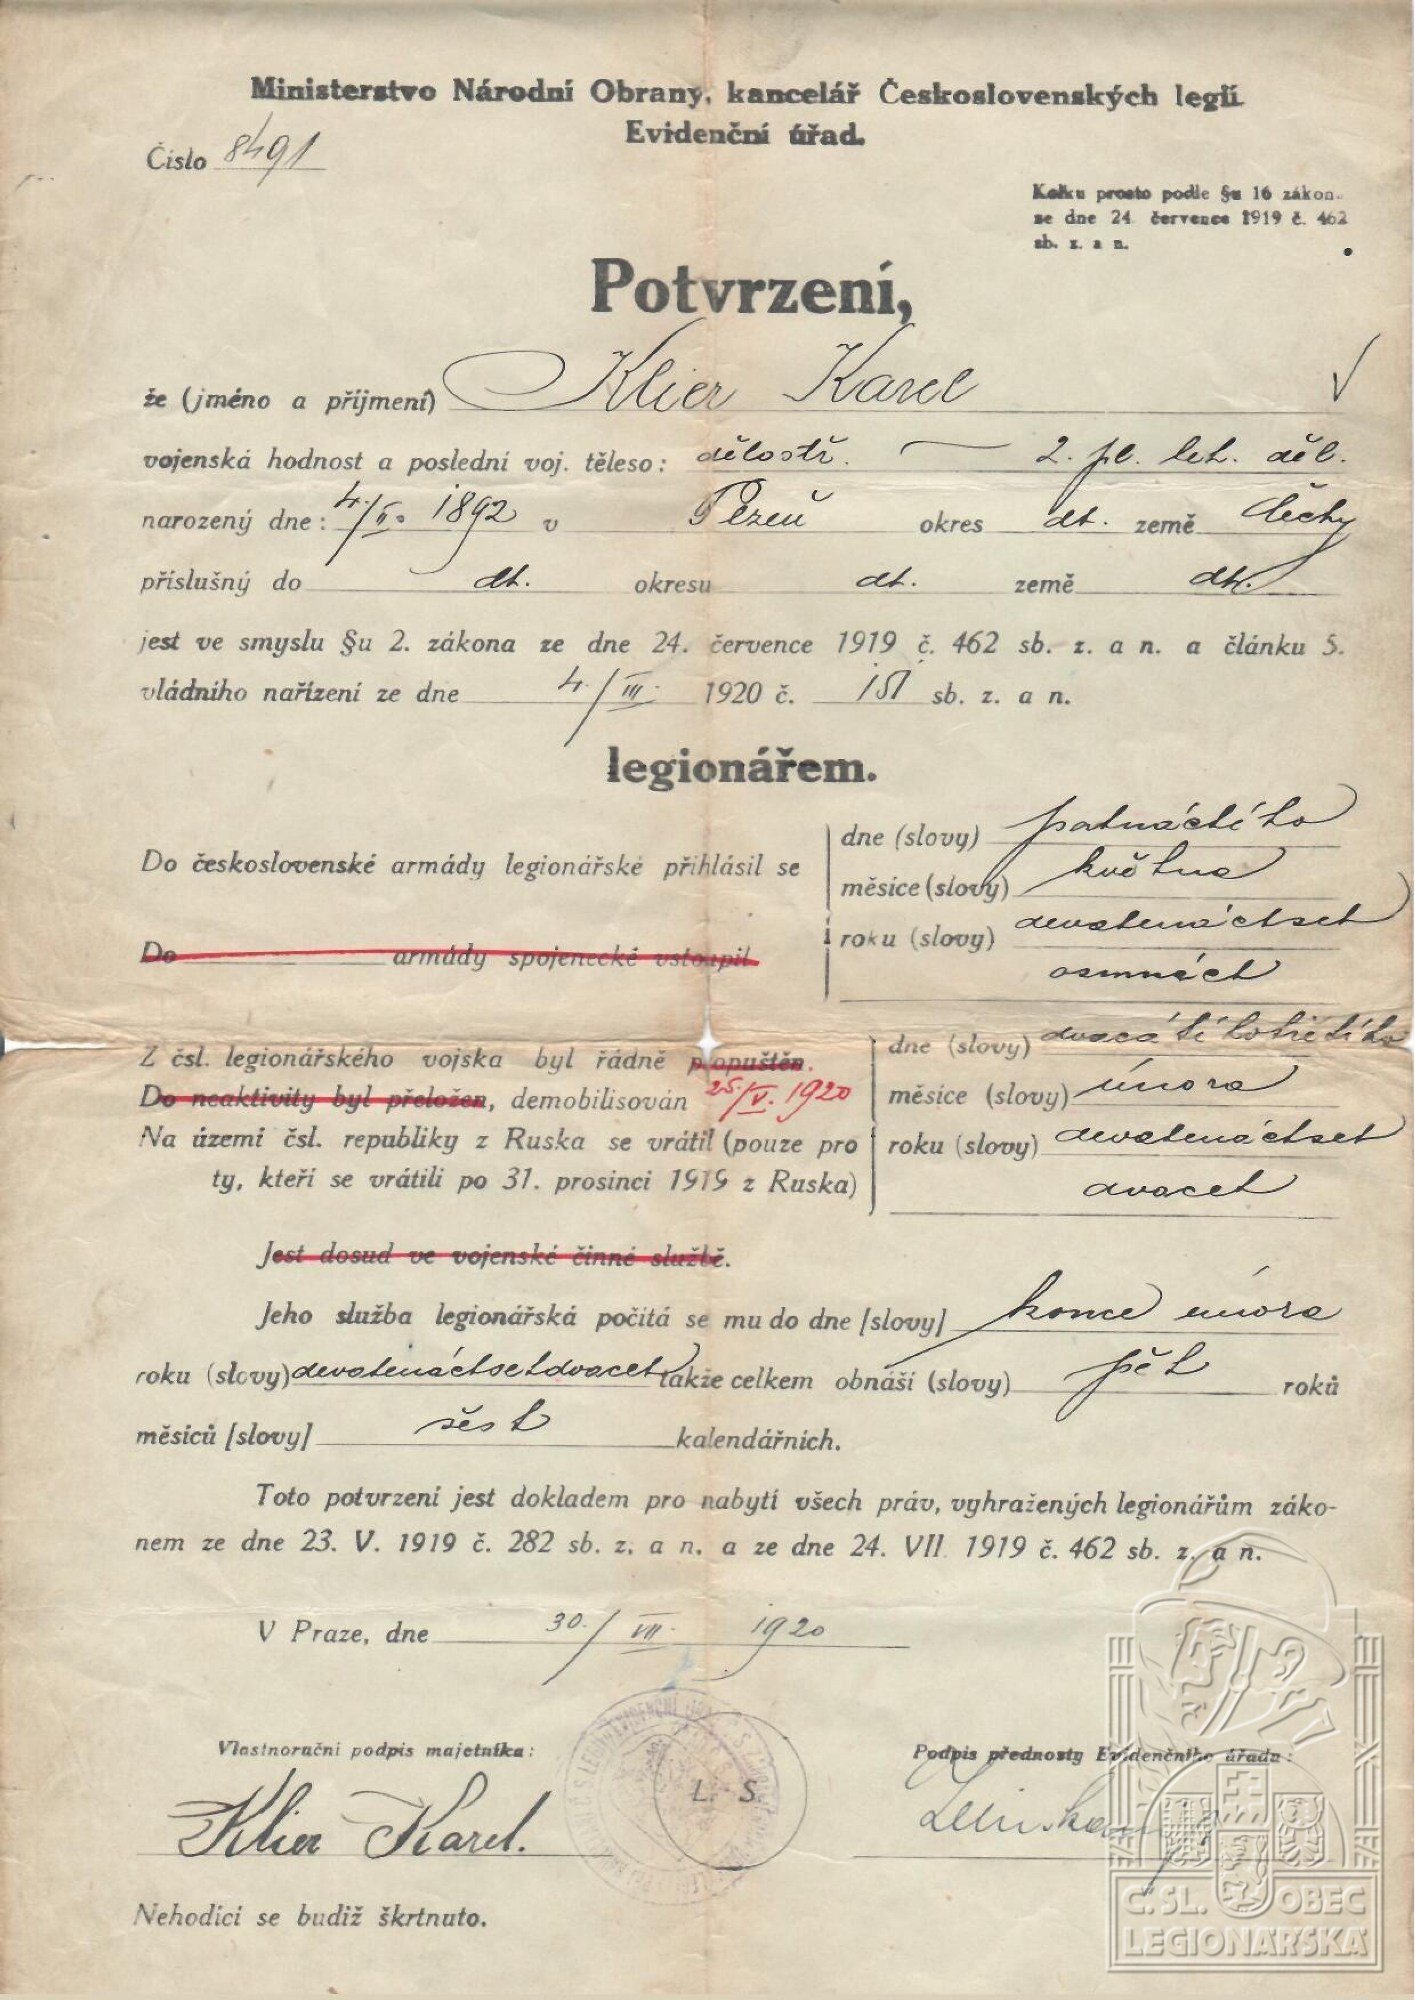 Ministerstvo Národní Obrany, kancelář Československých legií
Evidenční úřad.
Číslo 8491
Kolku prosto podle §u 16 zákon.
se dne 24. července 1919 č. 462
sb. z. a n.
Potvrzení,
že (jméno a příjmení) Klier Karel
vojenská hodnost a poslední voj. těleso: dělostř. — 2. pl. leh. děl.
narozený dne: 4./II. 1892 v Plzeň okres dt. země Čechy
příslušný do dt. okresu dt. země dt.
jest ve smyslu §u 2. zákona ze dne 24. července 1919 č. 462 sb. z. a n. a článku 5.
vládního nařízení ze dne 4./III. 1920 č. 151 sb. z. a n.
legionářem.
Do československé armády legionářské přihlásil se
Do armády spojenecké vstoupil
dne (slovy) patnáctého
měsíce (slovy) května
roku (slovy) devatenáctset
osmnáct
Z čsl. legionářského vojska byl řádně propuštěn.
Do neaktivity byl přeložen, demobilisován 25./V. 1920
Na území čsl. republiky z Ruska se vrátil (pouze pro
ty, kteří se vrátili po 31. prosinci 1919 z Ruska)
dne (slovy) dvacátéhotřetího
měsíce (slovy) února
roku (slovy) devatenáctset
dvacet
Jest dosud ve vojenské činné službě.
Jeho služba legionářská počítá se mu do dne [slovy] konce února
roku (slovy) devatenáctsetdvacet takže celkem obnáší (slovy) pět roků
měsíců [slovy] šest kalendářních.
Toto potvrzení jest dokladem pro nabytí všech práv, vyhražených legionářům záko-
nem ze dne 23. V. 1919 č. 282 sb. z. a n. a ze dne 24. VII. 1919 č. 462 sb. z. a n.
V Praze, dne 30./VII. 1920
Vlastnoruční podpis majetníka:
Podpis přednosty Evidenčního úřadu:
L. S.
Klier Karel.
Nehodící se budiž škrtnuto.
Č.SL. OBEC
LEGIONÁŘSKÁ